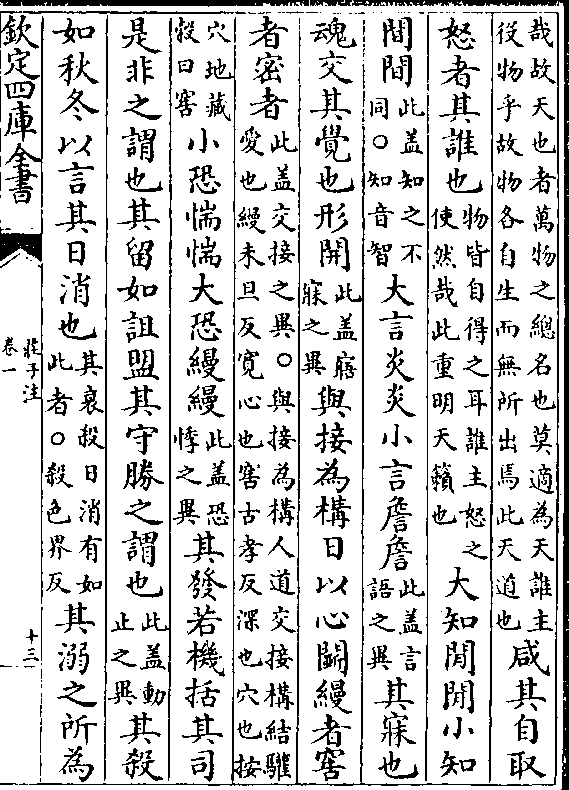 哉故天也者萬物之總名也莫適為天誰主
役物乎故物各自生而無所出焉此天道也
咸其自取
怒者其誰也
物皆自得之耳誰主怒之
使然哉此重明天籟也
大知閒閒小知
間間
此盖知之不
同○知音智
大言炎炎小言詹詹
此盖言
語之異
其寐也
魂交其覺也形開
此盖寤
寐之異
與接為構日以心鬭縵者窖
者密者
此盖交接之異○與接為構人道交接構結驩
愛也縵末旦反寛心也窖古孝反深也穴也按
穴地藏
穀曰窖
小恐惴惴大恐縵縵
此盖恐
悸之異
其發若機括其司
是非之謂也其留如詛盟其守勝之謂也
此盖動
止之異
其殺
如秋冬以言其日消也
其衰殺日消有如
此者○殺色界反
其溺之所為
欽定四庫全書
莊子注
卷一
十三